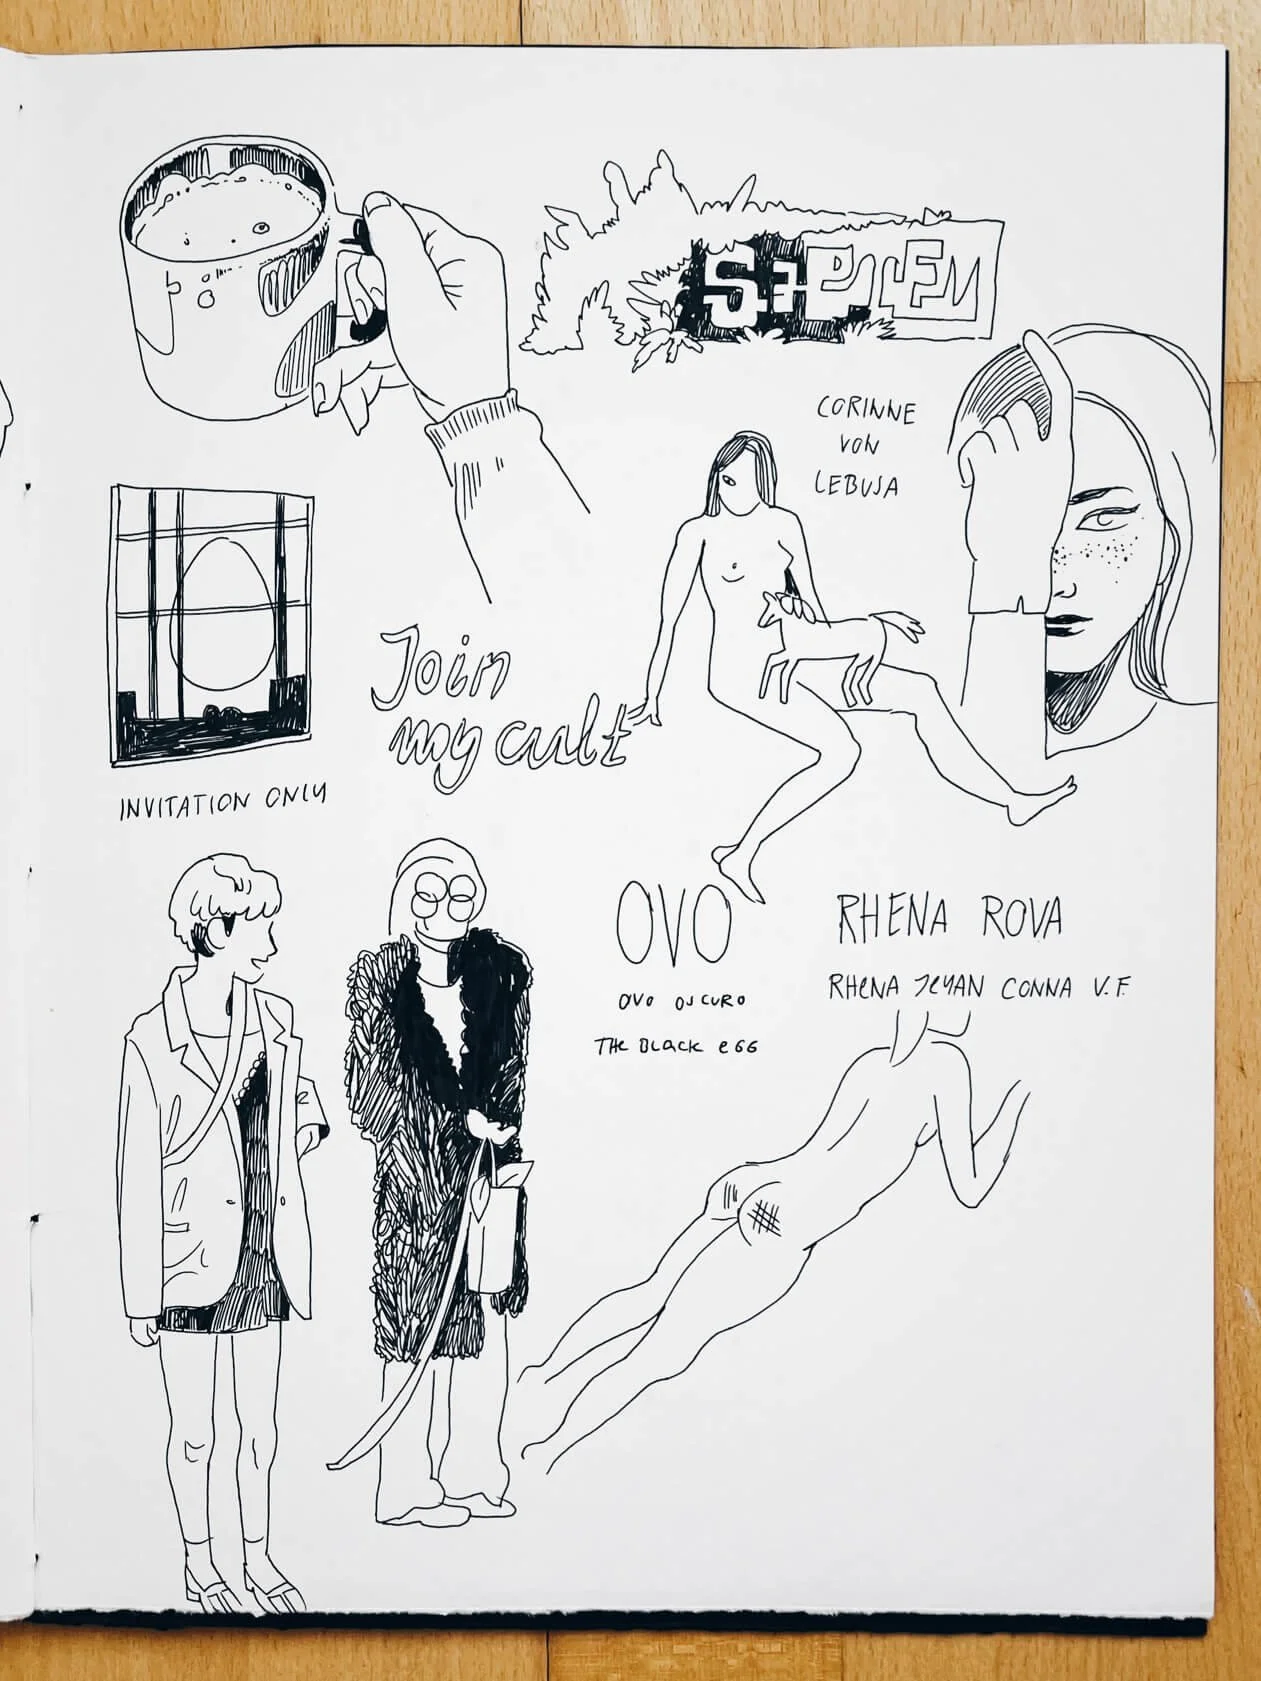 CORINNE
VON
LEBUSA
Join
my cult
INVITATION ONLY
OVO
OVO OSCURO
THE BLACK EGG
RHENA ROVA
RHENA CONNA V.F.